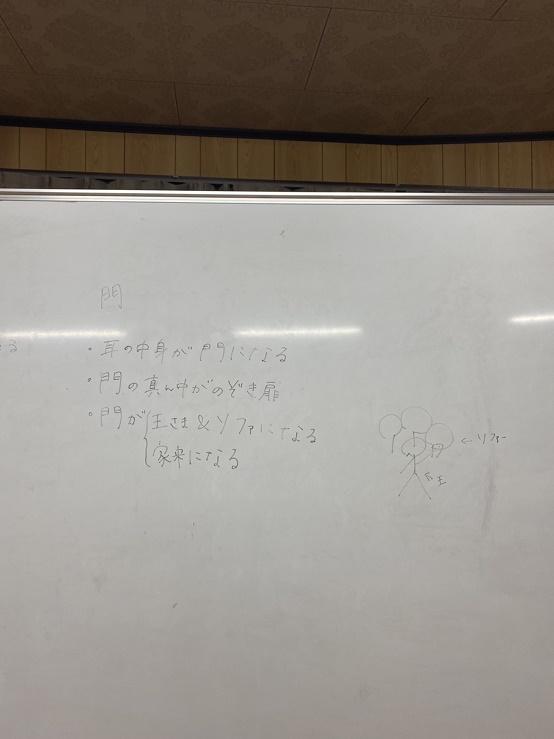 門
る
・耳の中身が門になる
・門の真ん中がのぞき扉
・門が{王さま&ソファになる
家来になる
←ソファー
←王